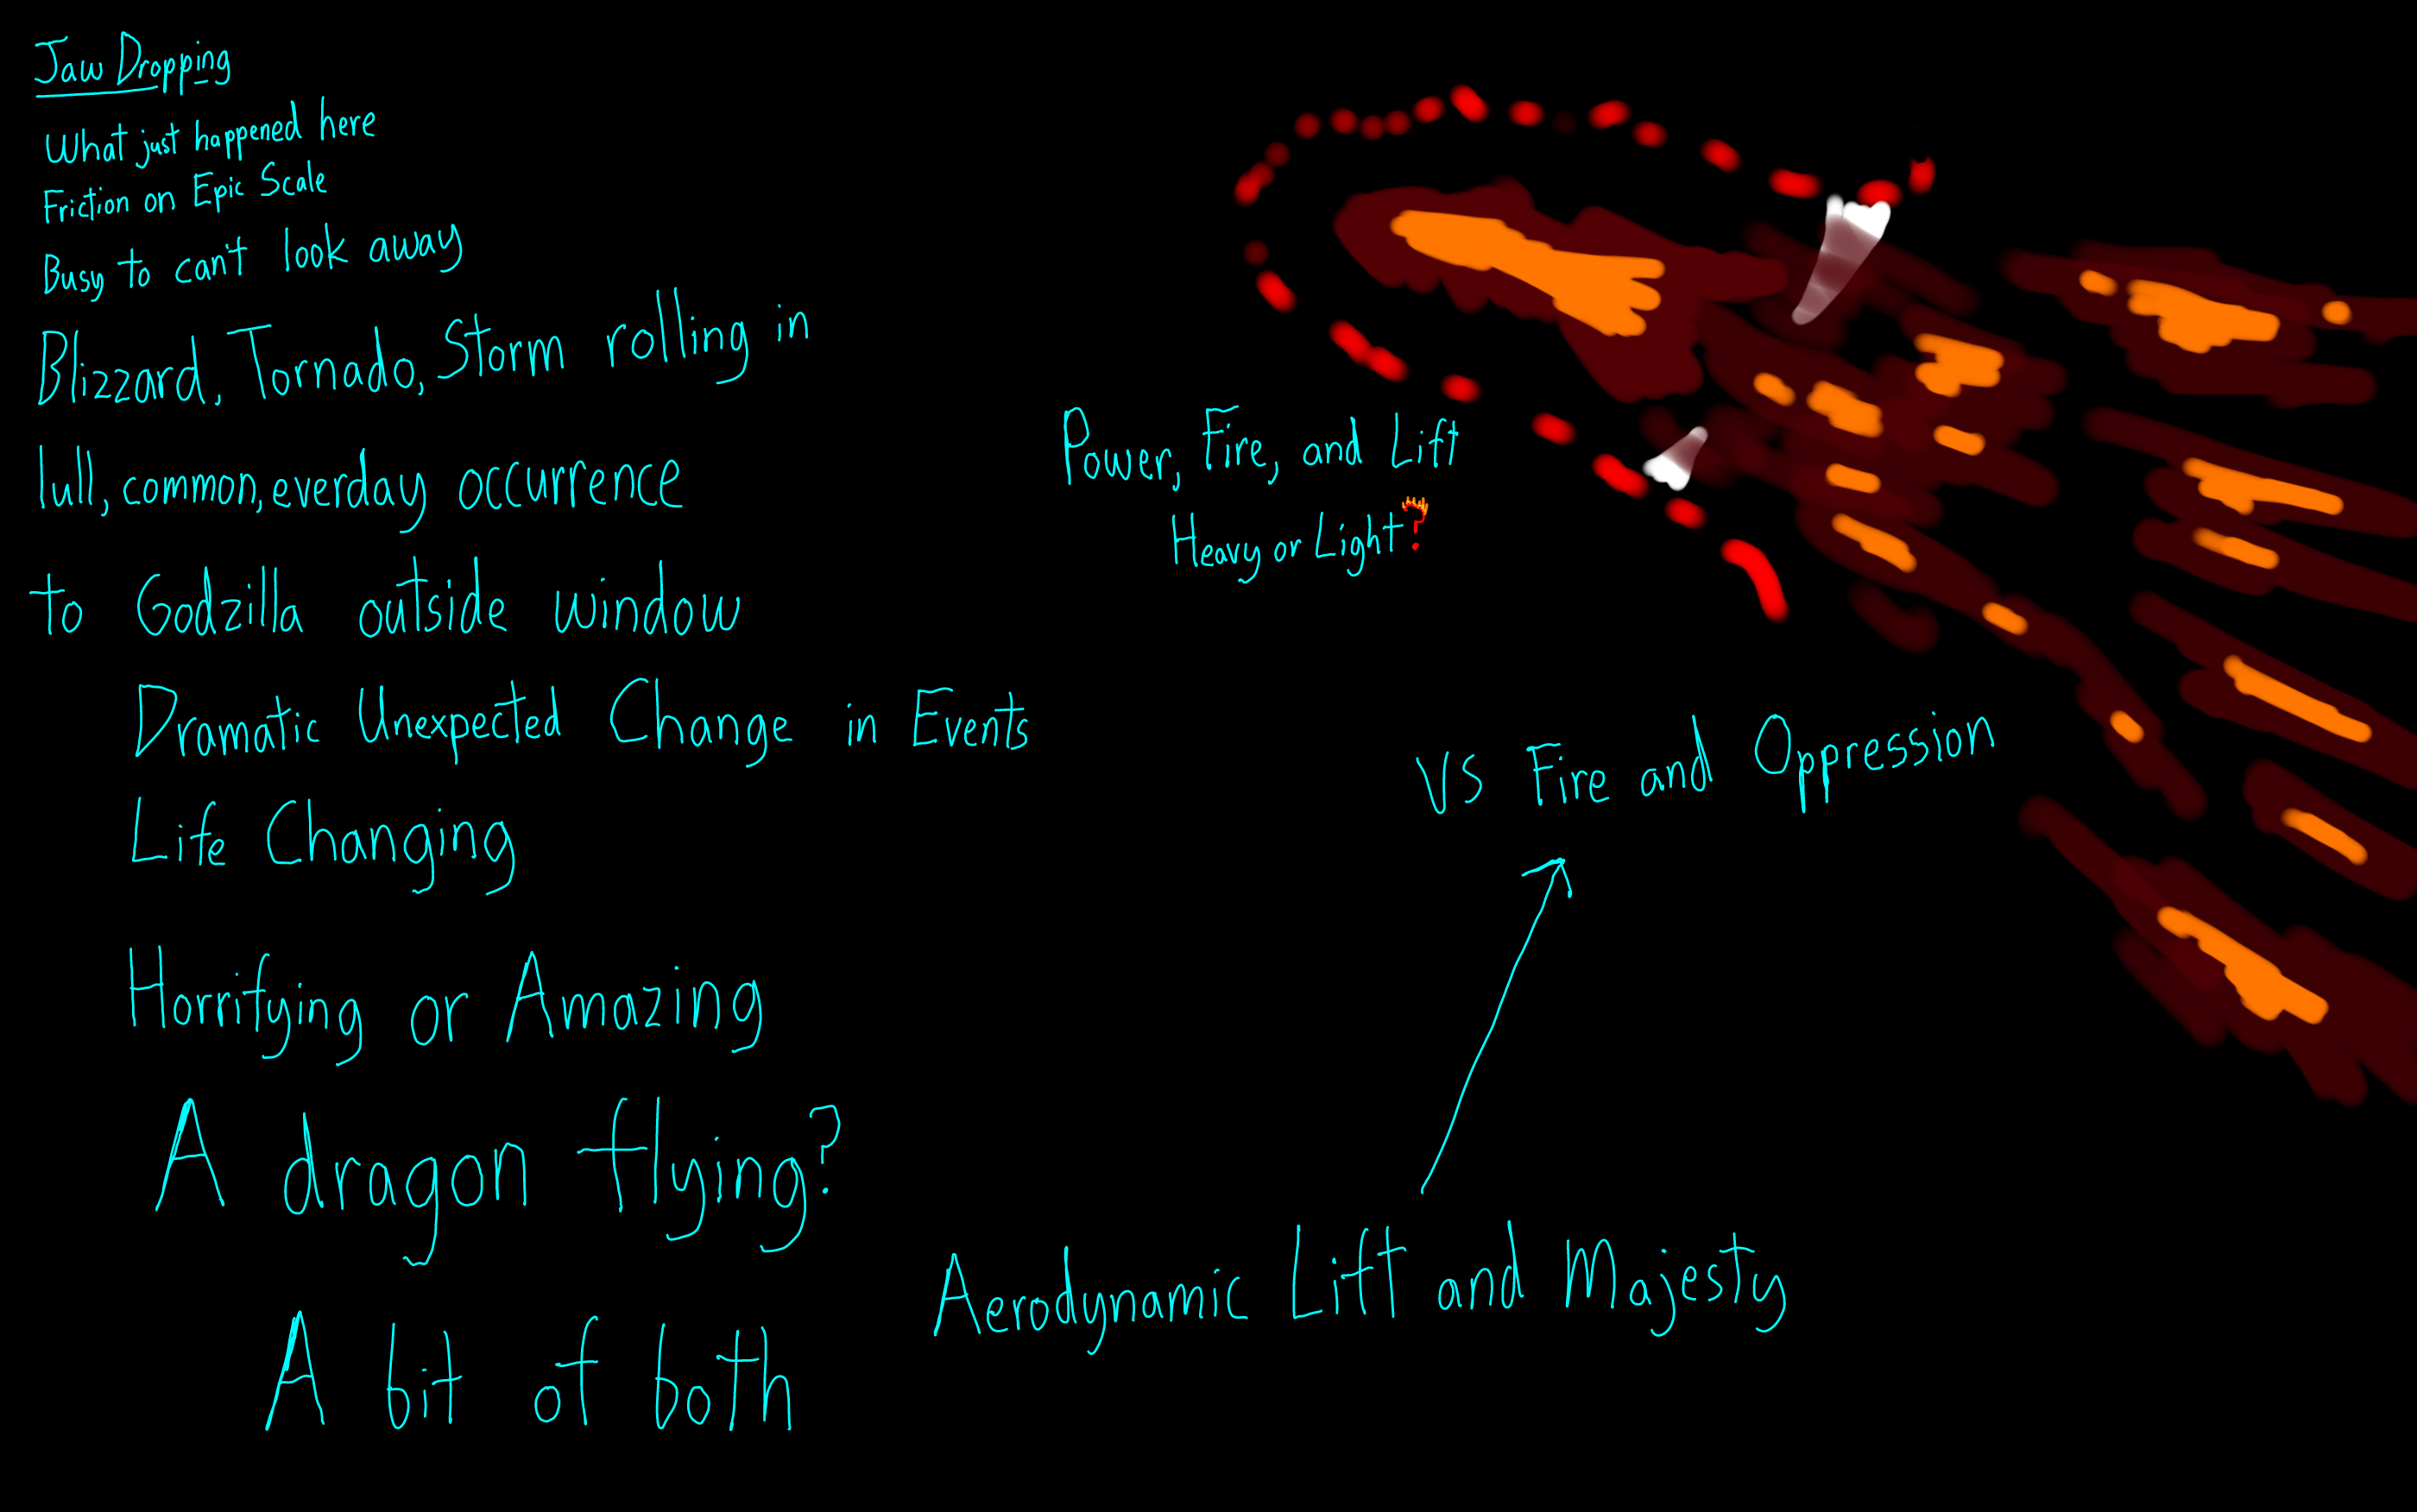 Jaw Dropping
What just happened here
Friction on Epic Scale
Busy to can't look away
Blizzard, Tornado, Storm rolling in
lull, common, everday occurrence
to Godzilla outside window
Dramatic Unexpected Change in Events
Life Changing
Horrifying or Amazing
A dragon flying?
A bit of both
Power, Fire, and Lift
Heavy or Light?
vs Fire and Oppression
Aerodynamic Lift and Majesty